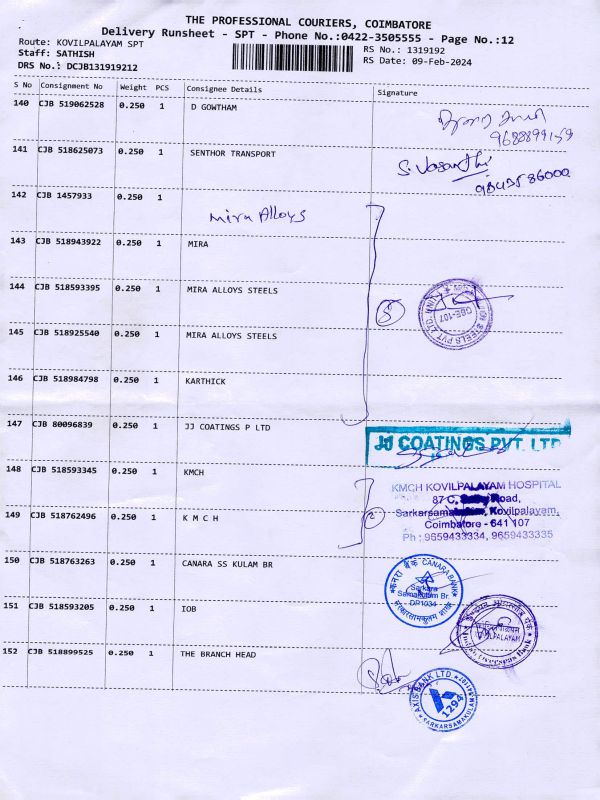 THE PROFESSIONAL COURIERS, COIMBATORE
Delivery Runsheet - SPT - Phone No.:0422-3505555 - Page No.:12
Route: KOVILPALAYAM SPT
RS No.: 1319192
Staff: SATHISH
RS Date: 09-Feb-2024
DRS No.: DCJB131919212
S No Consignment No Weight PCS Consignee Details Signature
140 CJB 519062528 0.250 1 D GOWTHAM
9688899159
141 CJB 518625073 0.250 1 SENTHOR TRANSPORT
S. Vasanthi
9843586000
142 CJB 1457933 0.250 1
Mira Alloys
143 CJB 518943922 0.250 1 MIRA
144 CJB 518593395 0.250 1 MIRA ALLOYS STEELS
5
STEELS PVT. LTD. UNIT
CBE-107
145 CJB 518925540 0.250 1 MIRA ALLOYS STEELS
146 CJB 518984798 0.250 1 KARTHICK
147 CJB 80096839 0.250 1 JJ COATINGS P LTD
JJ COATINGS PVT. LTD
148 CJB 518593345 0.250 1 KMCH
KMCH KOVILPALAYAM HOSPITAL
87 C, Road,
149 CJB 518762496 0.250 1 K M C H
2
Sarkarsamakulam, Kovilpalayam,
Coimbatore - 641 107
Ph : 9659433334, 9659433335
150 CJB 518763263 0.250 1 CANARA SS KULAM BR
केनरा बैंक CANARA BANK
Sarkara
Samakulam Br
DP1034
151 CJB 518593205 0.250 1 IOB
KOVILPALAYAM
Indian Overseas Bank
152 CJB 518899525 0.250 1 THE BRANCH HEAD
AXIS BANK LTD.
1294
SARKARSAMAKULAM